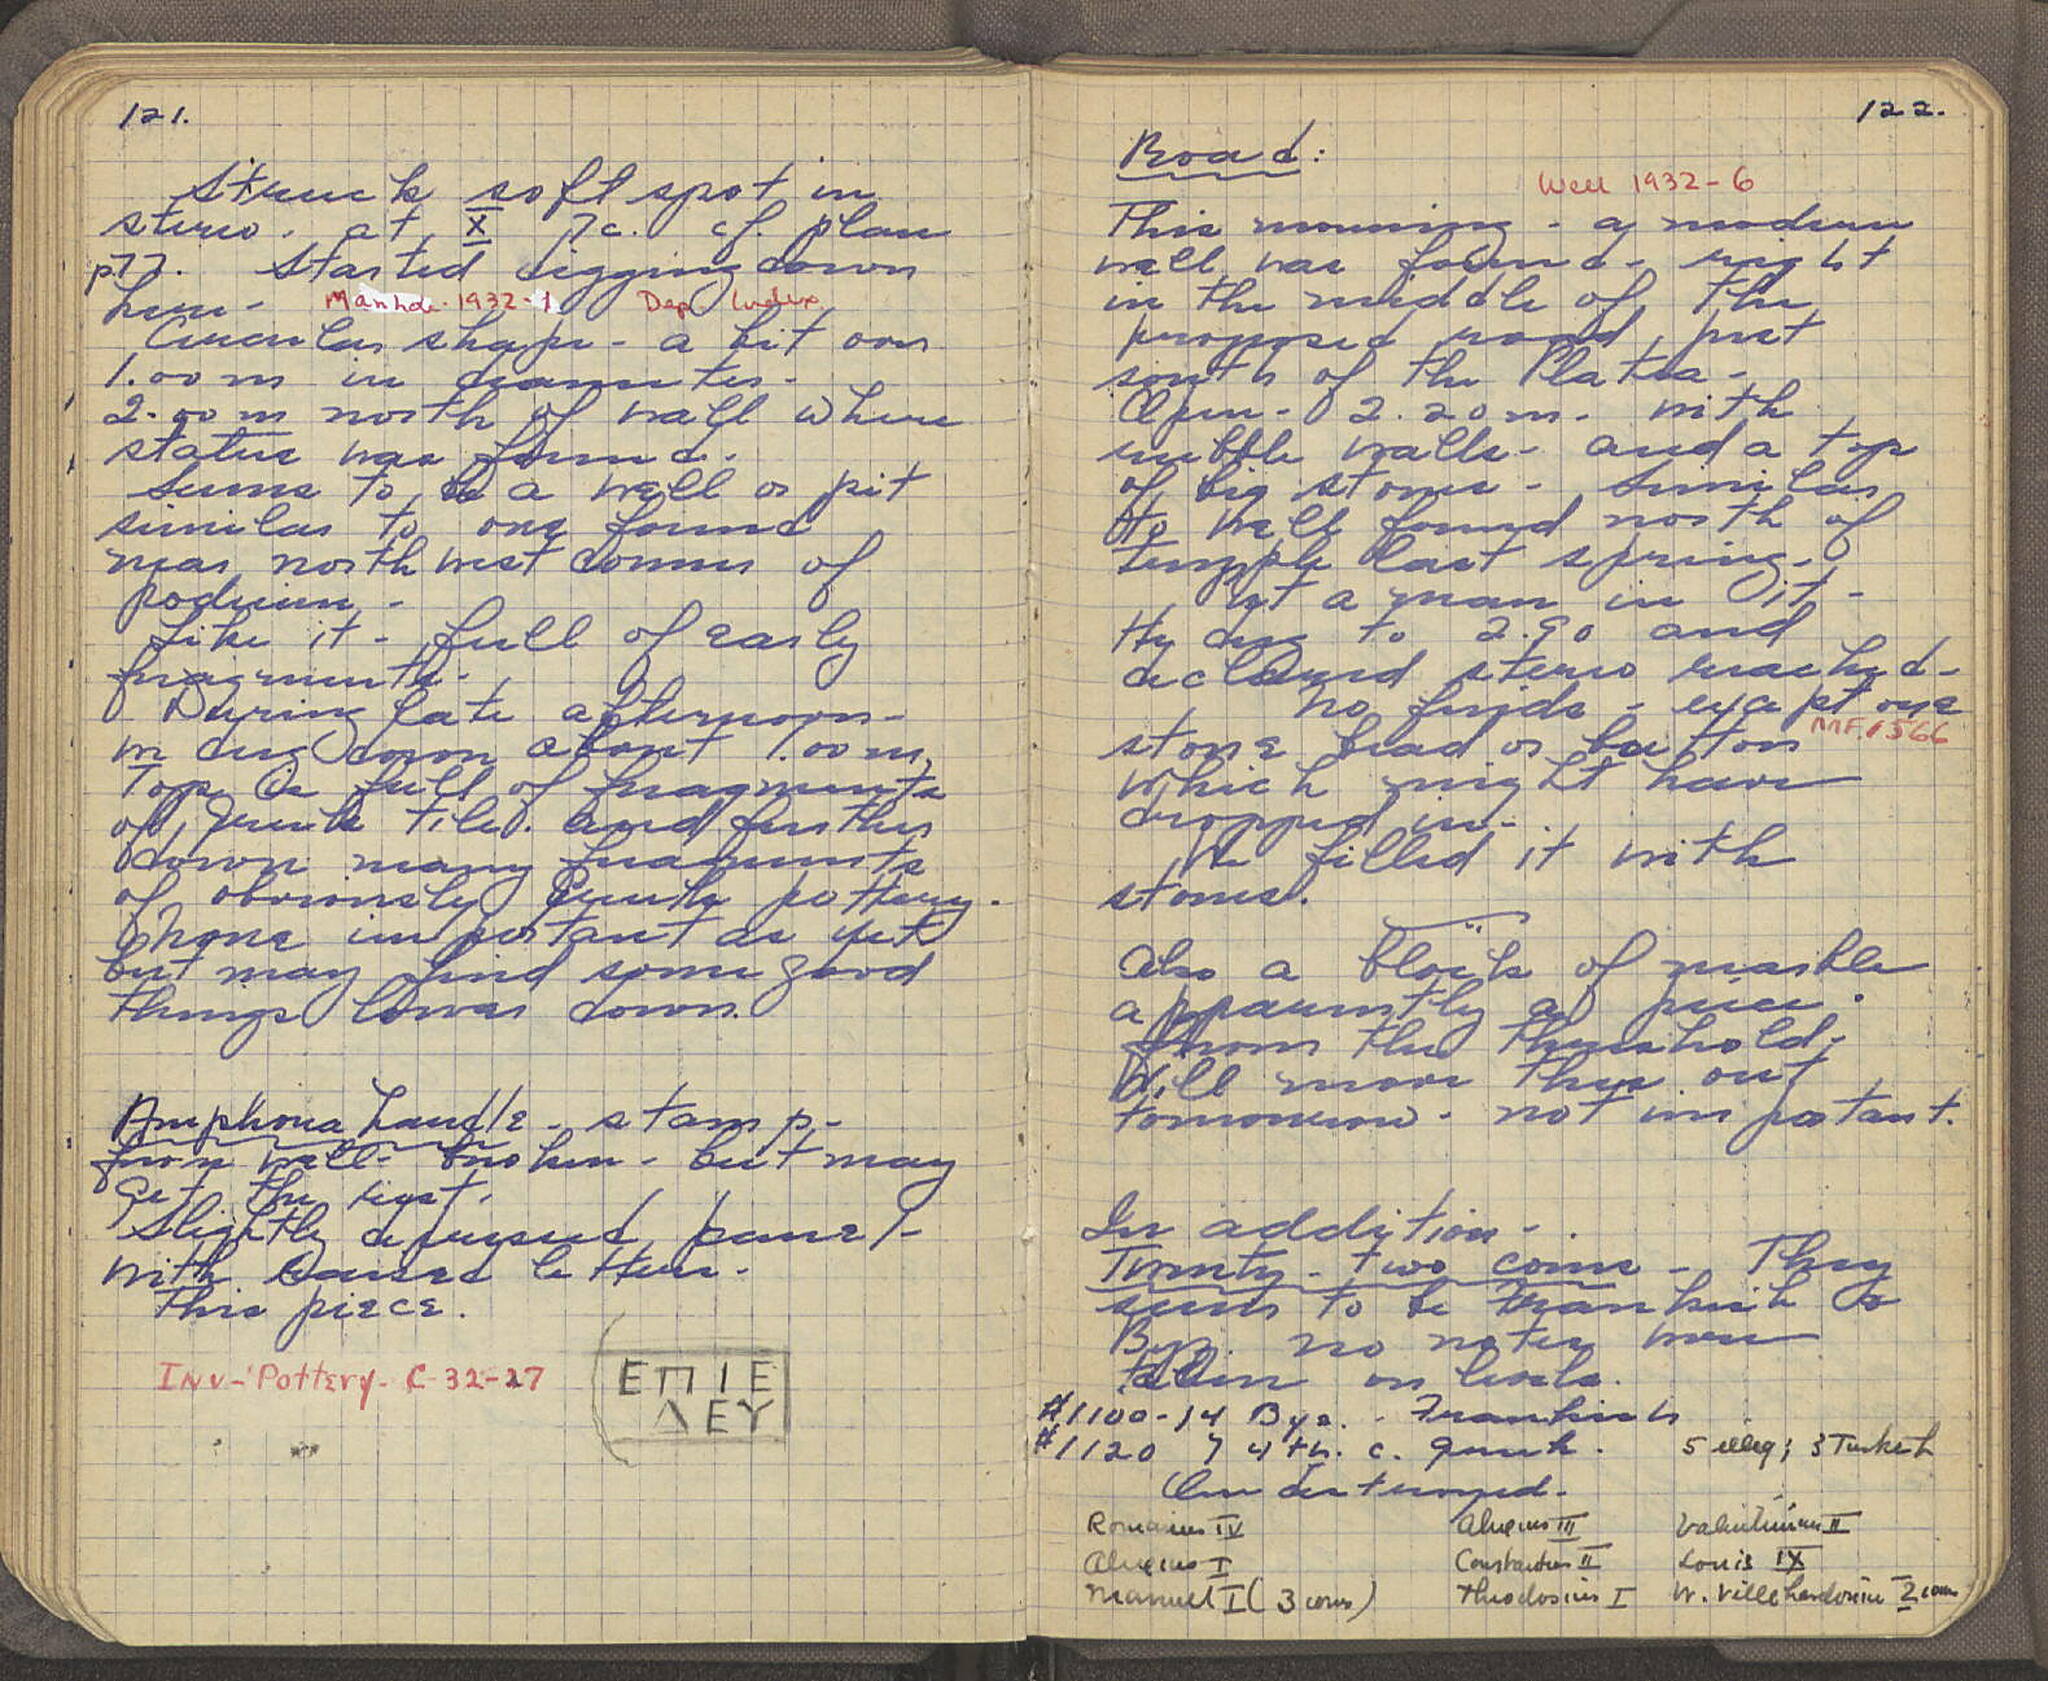 121.
Struck soft spot in
stereo. at X 7c. cf. plan
p77. Started digging down
here -
Manhole 1932-1 Dep Index
Circular shape - a bit over
1.00 m in diameter -
2.00 m north of wall where
statue was found.
Seems to be a well or pit
similar to one found
near northwest corner of
podium -
Like it - full of early
fragments -
During late afternoon -
we dug down about 1.00 m.
Top is full of fragments
of Greek tile. and further
down many fragments
of obviously Greek pottery.
None important as yet
but may find some good
things lower down.
Amphora handle - stamp -
from well - broken - but may
get the rest.
Slightly depressed panel -
with raised letters -
this piece.
Inv - Pottery - C-32-27
ΕΠΙΕ
ΛΕΥ
122.
Road:
Well 1932-6
This morning - a modern
well was found - right
in the middle of the
proposed road, just
south of the Platea -
Open - 2.20 m. with
rubble walls - and a top
of big stones - Similar
to well found north of
temple last spring.
Put a man in it -
He dug to 2.90 and
declared stereo reached -
No finds - except one
MF. 1566
stone bead or button
which might have
dropped in -
We filled it with
stones.
Also a block of marble
apparently a piece
from the threshold -
Will move this out
tomorrow - not important.
In addition -
Twenty-two coins - They
seem to be Frankish or
Byz. no notes were
taken on levels.
#1100-14 Byz. - Frankish
#1120 7 4th. c. Greek. 5 illeg; 3 Turkish
One destroyed.
Romanus IV Alexius III Valentinian II
Alexius I Constantius II Louis IX
Manuel I (3 coins) Theodosius I W. Villehardouin 2 coins